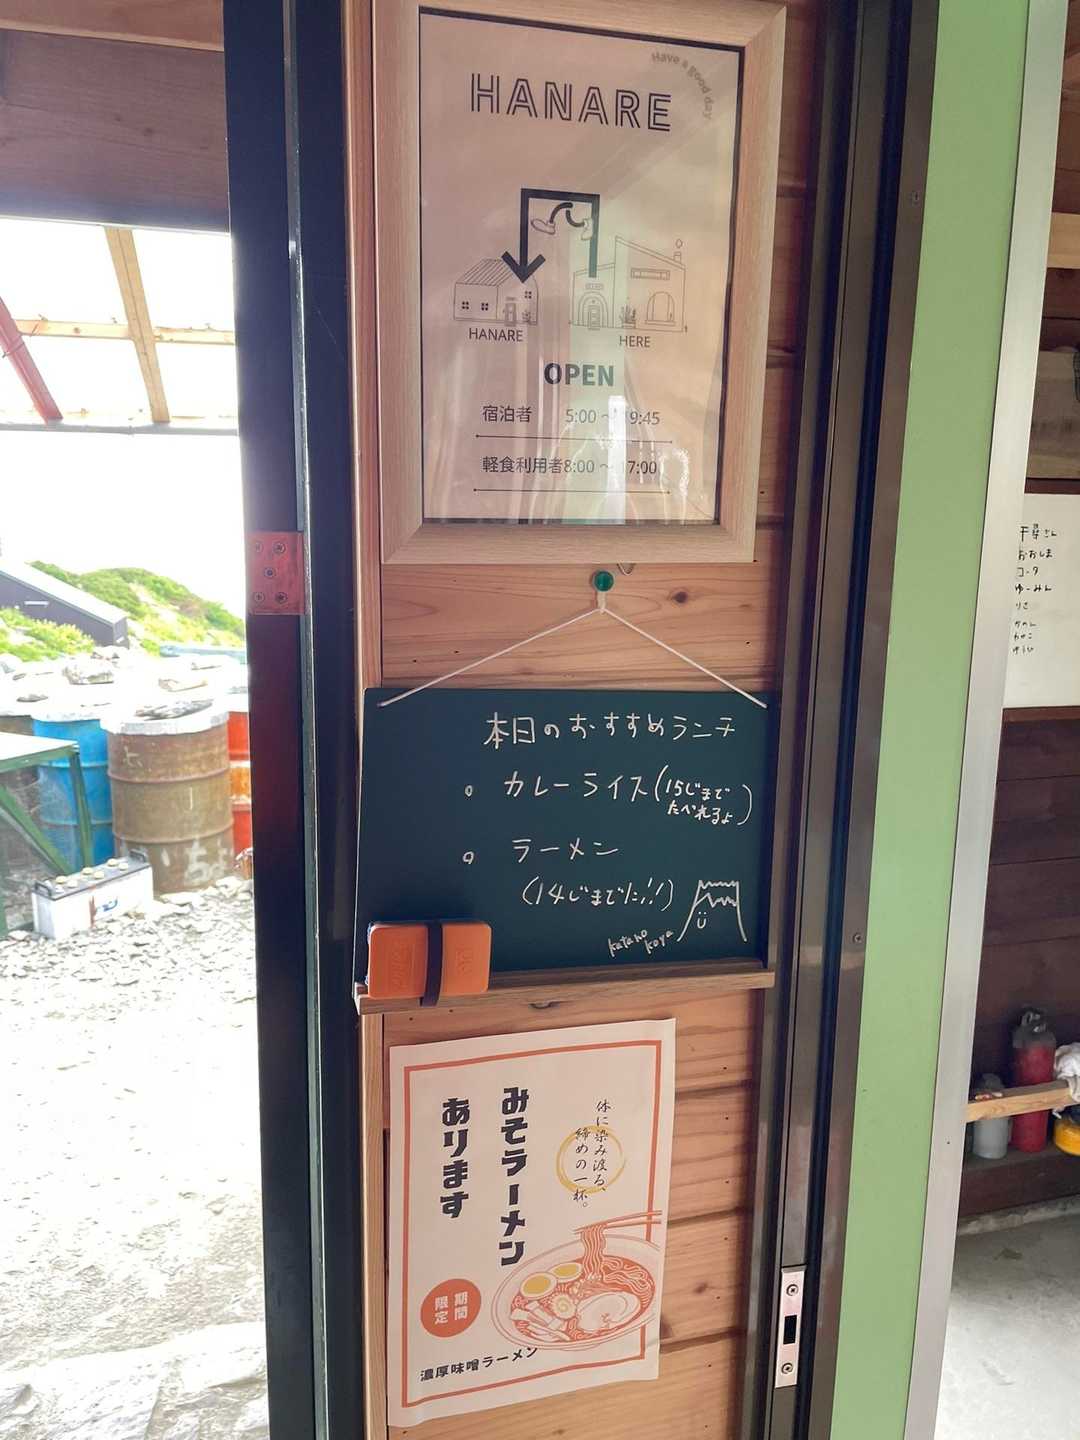 Have a good day
HANARE
HANARE
HERE
OPEN
宿泊者 5:00 〜 19:45
軽食利用者8:00 〜 17:00
本日のおすすめランチ
カレーライス(15じまで
たべれるよ)
ラーメン
(14じまでだよ!!)
katano
koya
体に染み渡る、
締めの一杯。
みそラーメン
あります
期間
限定
濃厚味噌ラーメン
千尋さん
おおしま
コータ
ゆーみん
りさ
かのん